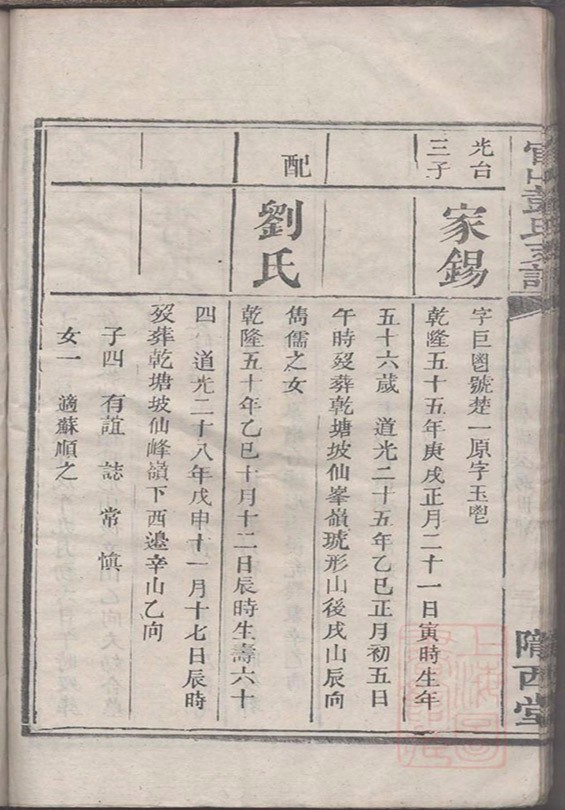 彭氏支譜
隴西堂
光台
三子
家錫
字巨鬯號楚一原字玉鬯
乾隆五十五年庚戌正月二十一日寅時生年
五十六歲 道光二十五年乙巳正月初五日
午時歿葬乾塘坡仙峯嶺琥形山後戌山辰向
配
劉氏
儁儒之女
乾隆五十年乙巳十月十二日辰時生壽六十
四 道光二十八年戊申十一月十七日辰時
歿葬乾塘坡仙峰嶺下西邉辛山乙向
子四 有誼 誌 常 愼
女一 適蘇順之